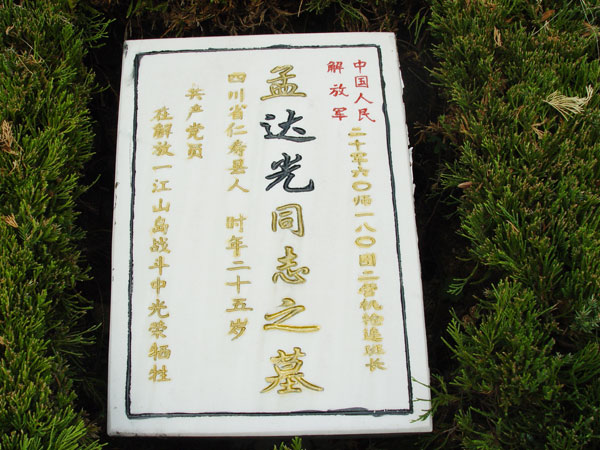 中国人民
解放军
二十军六〇师一八〇团二营机枪连班长
孟达光同志之墓
四川省仁寿县人 时年二十五岁
共产党员
在解放一江山岛战斗中光荣牺牲